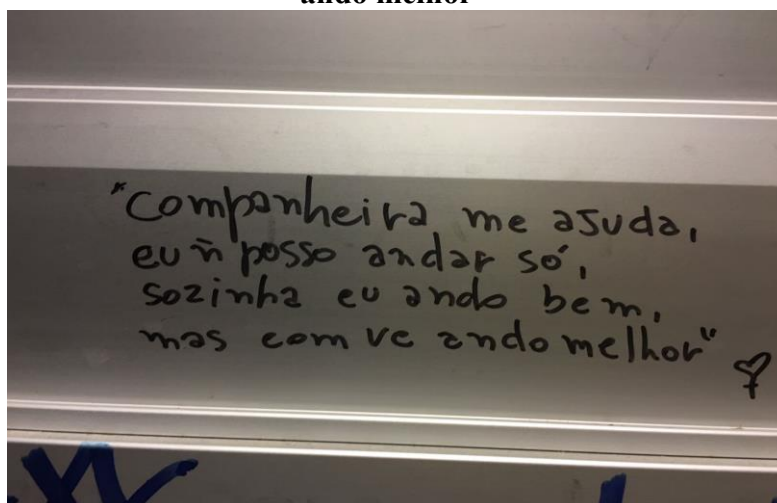 ando melhor
"companheira me ajuda,
eu ñ posso andar só,
sozinha eu ando bem,
mas com vc ando melhor"